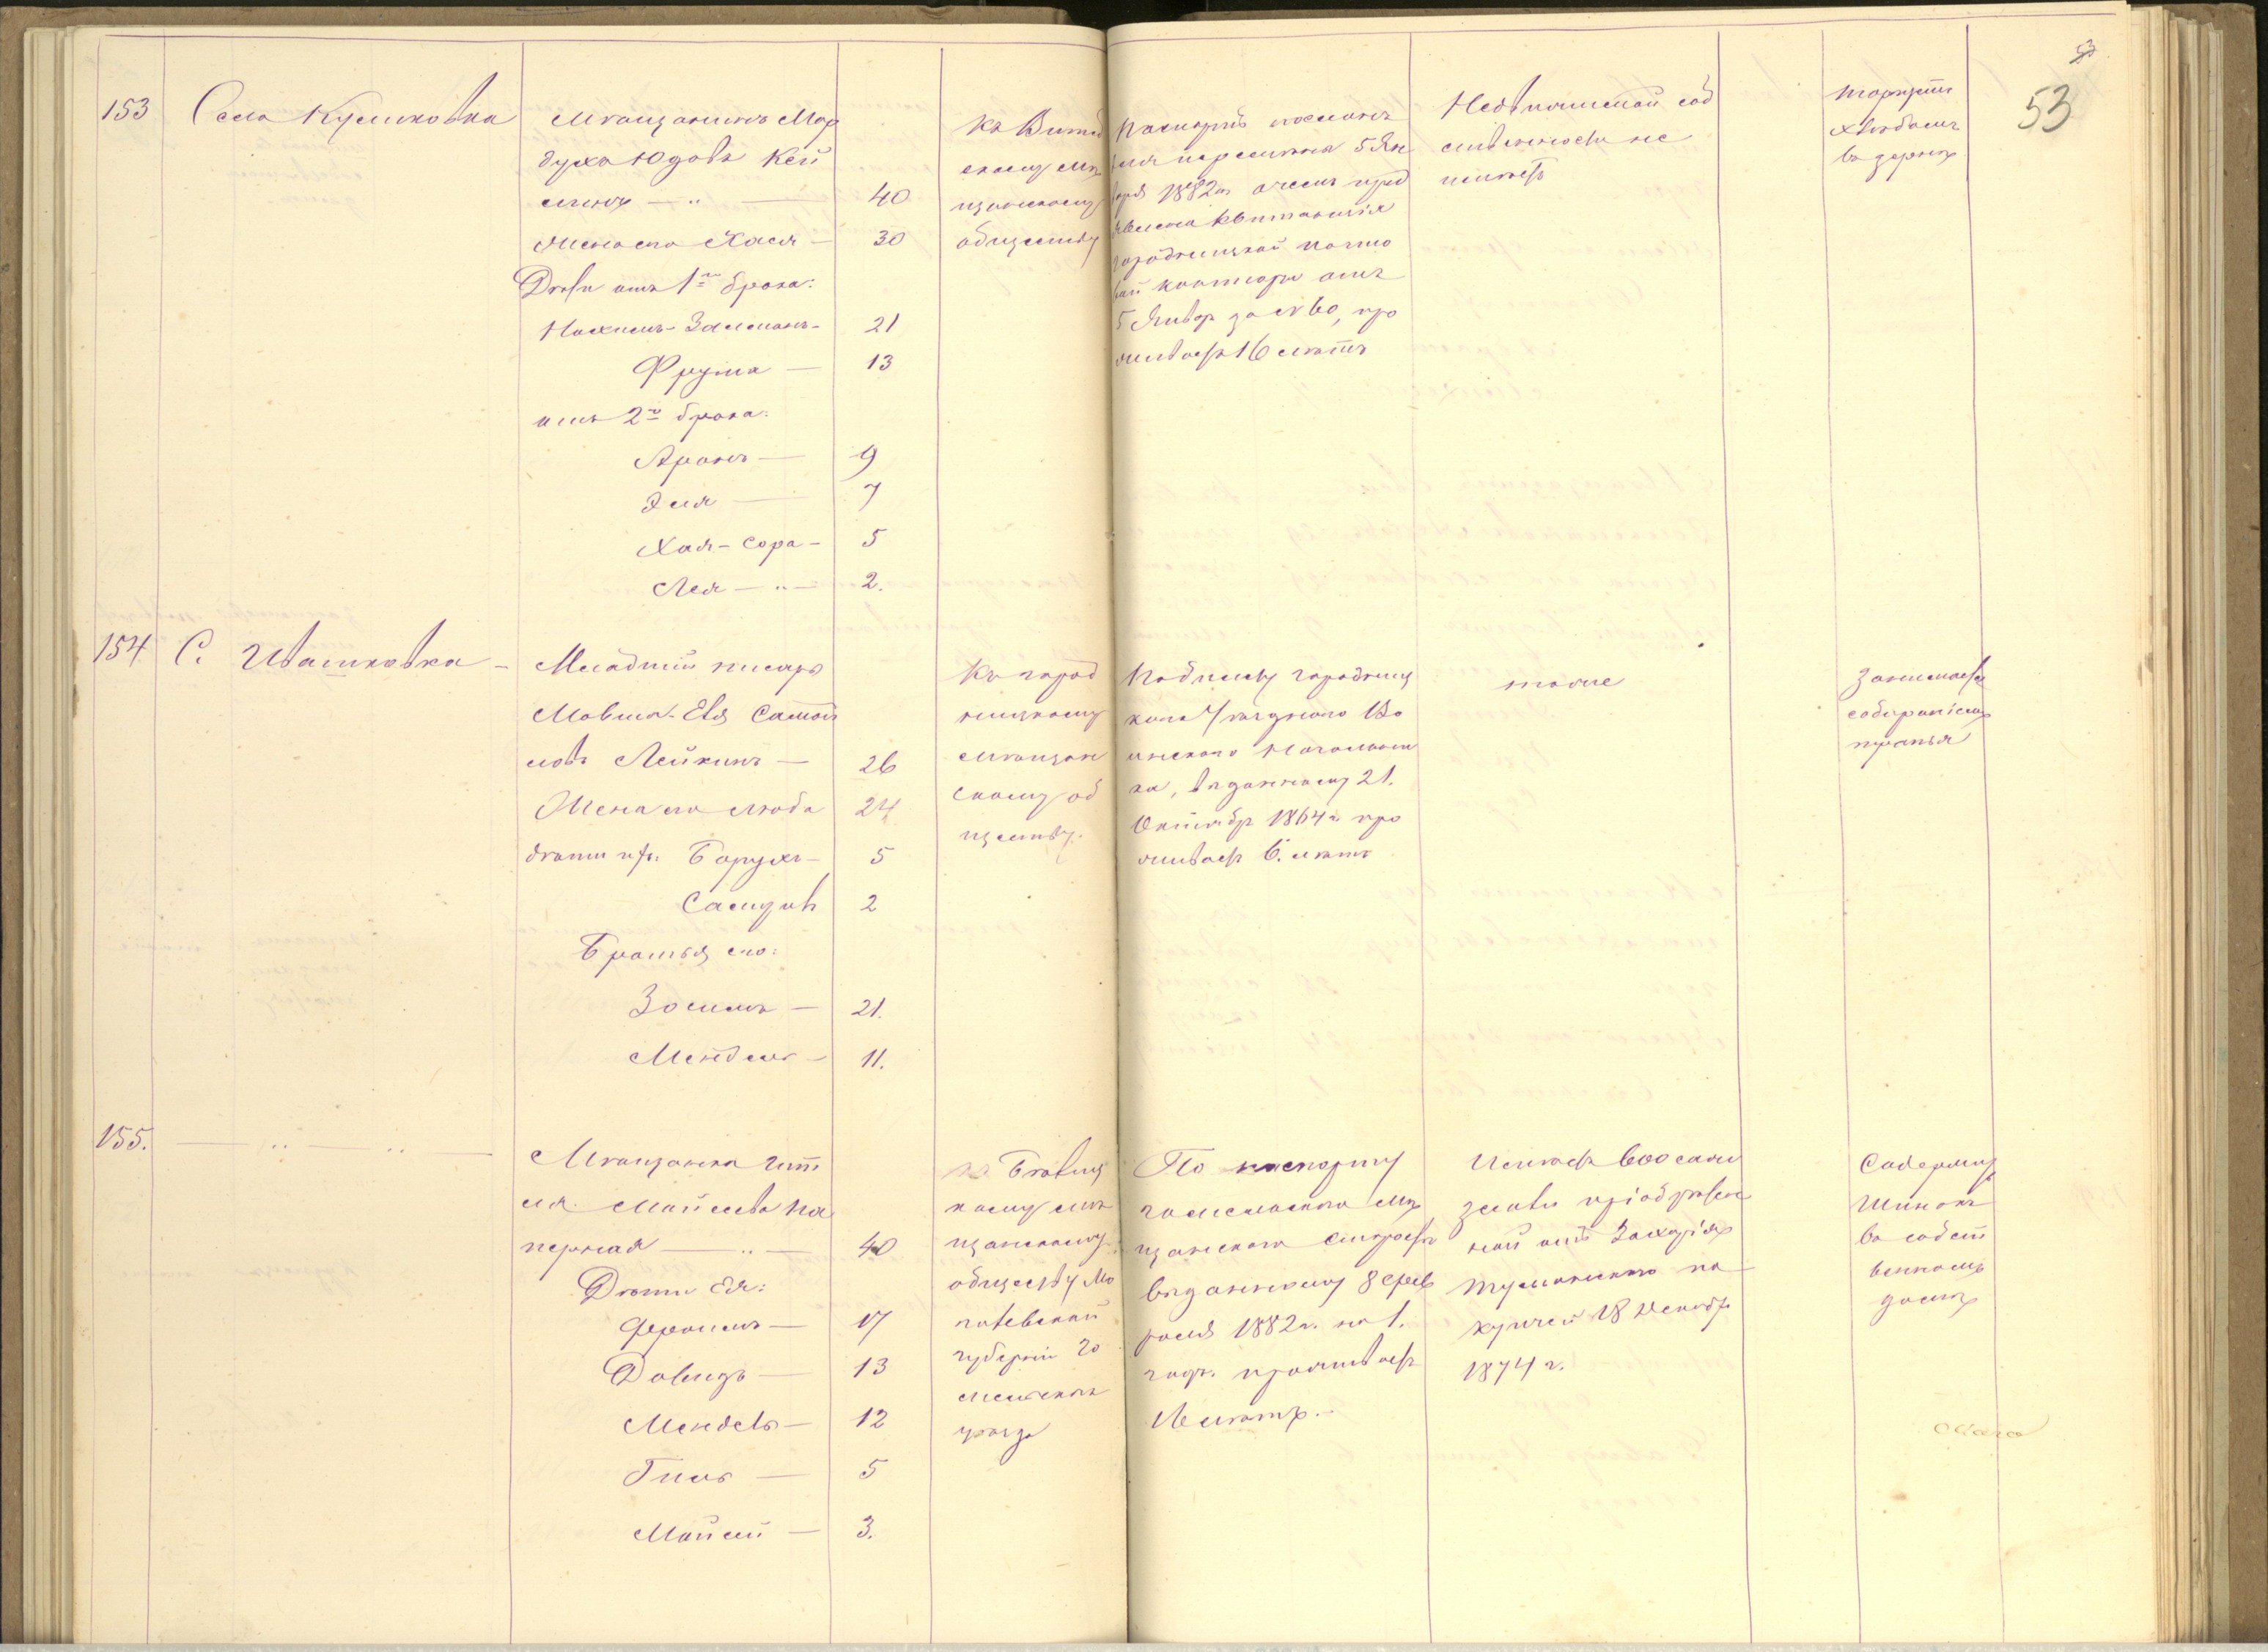 53
53
153
Село Куликовка
Мѣщанинъ Мор
духъ Юдовъ Кей
линъ — " —
40
Жена его Хася —
30
Дѣти отъ 1го брака:
Нохимъ-Залманъ —
21
Фрума —
13
отъ 2го брака:
Аронъ —
9
Эля —
7
Хая-Сора —
5
Лея — " —
2.
Къ
скому мѣ
щанскому
обществу
Паспортъ посланъ
для перемѣны 5 Ян
варя 1882 г. о чемъ пред
явлена квитанція
городницкой почто
вой конторы отъ
5 Январ за № 60, про
живаетъ 16 лѣтъ
Недвижимой соб
ственности не
имѣетъ
торгуетъ
хлѣбомъ
въ зернѣ
154
С. Ивашковка —
Младшій писарь
Мовша-Евя Самой
ловъ Лейкинъ —
26
Жена его Люба
24
дѣти ихъ: Борухъ —
5
Самуилъ
2
Братья его:
21.
Мендель —
11.
Къ город
ницкому
мѣщан
скому об
ществу.
По билету городниц
каго Уѣзднаго Во
инскаго Начальни
ка, выданному 21.
Октябр 1864 г. про
живаетъ 6. лѣтъ
тоже
Занимаетс
собираніемъ
тряпья
155.
— " — " —
Мѣщанка Гит
ля Мойсеева Ка
перная — " —
40
Дѣти Ея:
Фроимъ —
17
Довидъ —
13
Мендель —
12
Гиль —
5
Мойсей —
3.
къ Бѣлиц
кому мѣ
щанскому
обществу Мо
гилевской
губерніи Го
мельскаго
уѣзда
По паспорту
гомельскаго мѣ
щанскаго старосты
выданному 8 Фев
раля 1882 г. на 1.
годъ. проживаетъ
лѣтъ. —
Имѣетъ 600 саж
земли пріобрѣтен
ной отъ Захарія
Туманскаго по
купчей 18 Декабр
1874 г.
Содержитъ
Шинокъ
въ собст
венномъ
домѣ